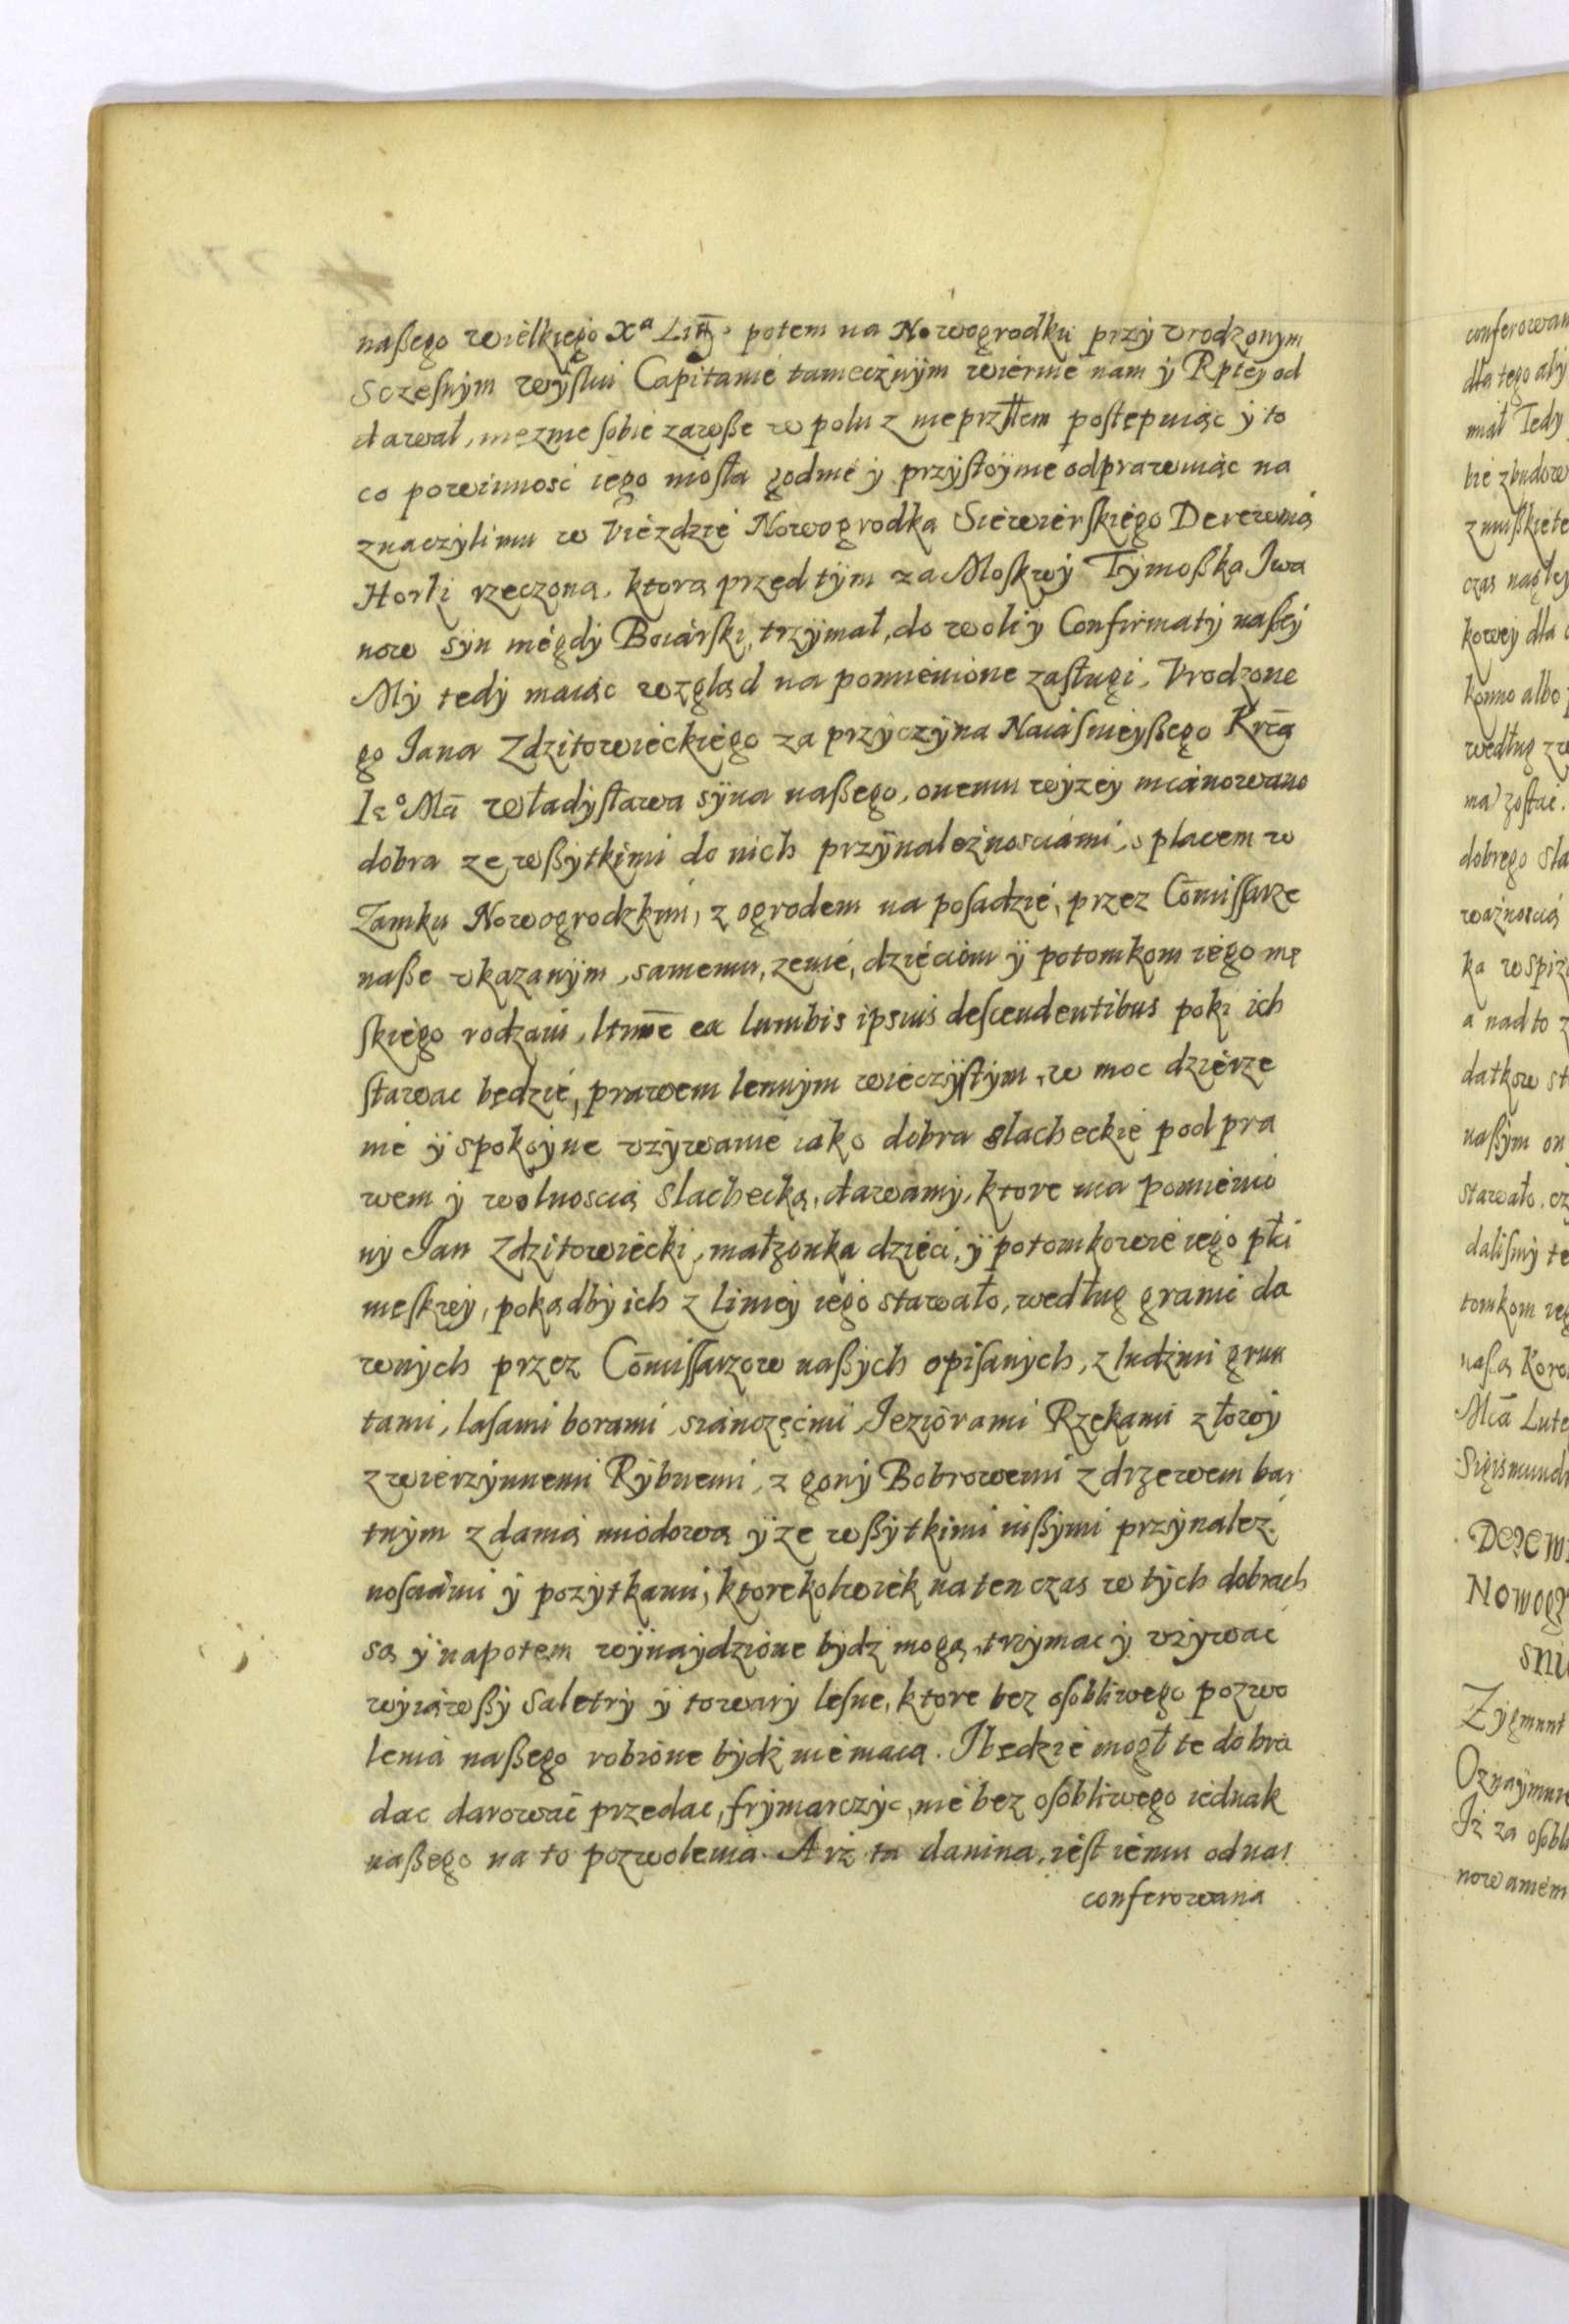 naßego wielkiego Xa Litt. potem na Nowogrodku przy vrodzonym
Sczesnym Wysłui Capitanie tamecznym wiernie nam y Rptey od
dawał, męznie sobie zawße w polu z nieprzłłem postępuiąc y to
co powinnosc iego niosła godnie y przystoynie odprawuiąc na
znaczyli mu w Vieżdzie Nowogrodka Siewierskiego Derewnią
Horki rzeczoną, ktorą przed tym za Moskwy Tymoßka Iwa
now syn niegdy Boiarski, trzymał, do woli y Confirmaty naßey
My tedy maiąc wzgląd na pomienione zasługi, Vrodzone
go Iana Zdzitowieckiego za przyczyną Naiasnieyßego Krca
Ie° Mci Władysława syna naßego, onemu wyzey mianowano
dobra ze wßytkimi do nich przynaleznosciami, s placem w
Zamku Nowogrodzkim, z ogrodem na posadzie, przez Comissarze
naße vkazanym, samemu, zenie, dzieciom y potomkom iego mę
skiego rodzaiu, ltmē ex lumbis ipsius descendentibus poki ich
stawac będzie, prawem lennym wieczystym, w moc dzierze
nie y spokoyne vzywanie iako dobra slacheckie pod pra
wem y wolnoscią slachecką, dawamy, ktore ma pomienio
ny Ian Zdzitowiecki, małzonka dzieci, y potomkowie iego płci
meskiey, pokądby ich z liniey iego stawało, według granic da
wnych przez Comissarzow naßych opisanych, z ludzmi grun
tami, lasami borami, sianozęcmi Ieziorami Rzekami z łowy
z wierzynnemi Rybnemi, z gony Bobrowemi z drzewem bar
tnym z danią miodową y ze wßytkimi inßymi przynalez
nosciami y pozytkami, ktorekolwiek na ten czas w tych dobrach
są y napotem wynaydzione bydz mogą, trzymac y vzywac
wyiąwßy saletry y towary lesne, ktore bez osobliwego pozwo
lenia naßego robione bydz nie maią. I będzie mogł te dobra
dac darowac przedac, frymarczyc, nie bez osobliwego iednak
naßego na to pozwolenia. A iz ta danina, iest iemu od nas
conferowana